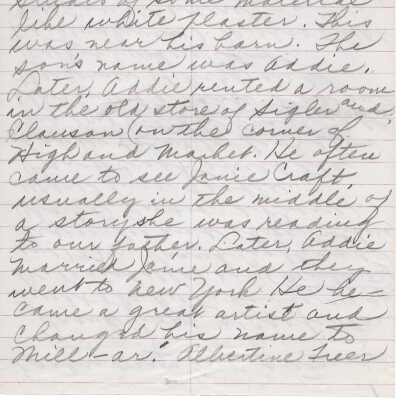 of some material
like white plaster. This
was near his barn. The
son's name was Addie.
Later, Addie rented a room
in the old store of Sigler and
Clauson (on the corner of
High and Market. He often
came to see Janie Craft,
usually in the middle of
a story she was reading
to our father. Later, Addie
married Janie and they
went to New York He be-
came a great artist and
changed his name to
Mill-ar. Albertine Freer